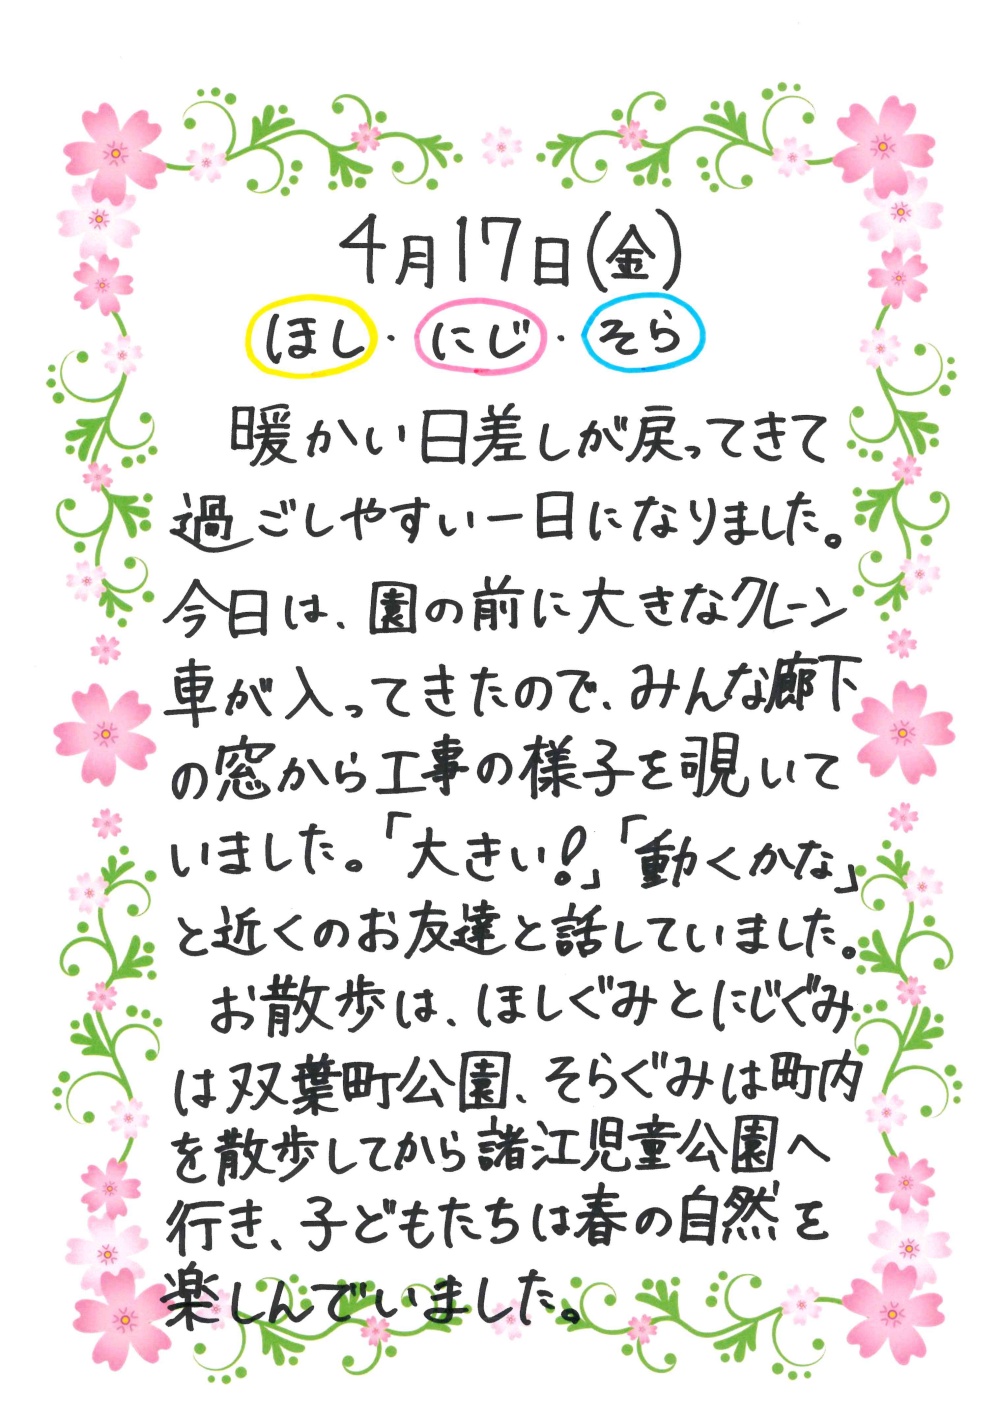 4月17日(金)
ほし・にじ・そら
暖かい日差しが戻ってきて
過ごしやすい一日になりました。
今日は、園の前に大きなクレーン
車が入ってきたので、みんな廊下
の窓から工事の様子を覗いて
いました。「大きい!」「動くかな」
と近くのお友達と話していました。
お散歩は、ほしぐみとにじぐみ
は双葉町公園、そらぐみは町内
を散歩してから諸江児童公園へ
行き、子どもたちは春の自然を
楽しんでいました。